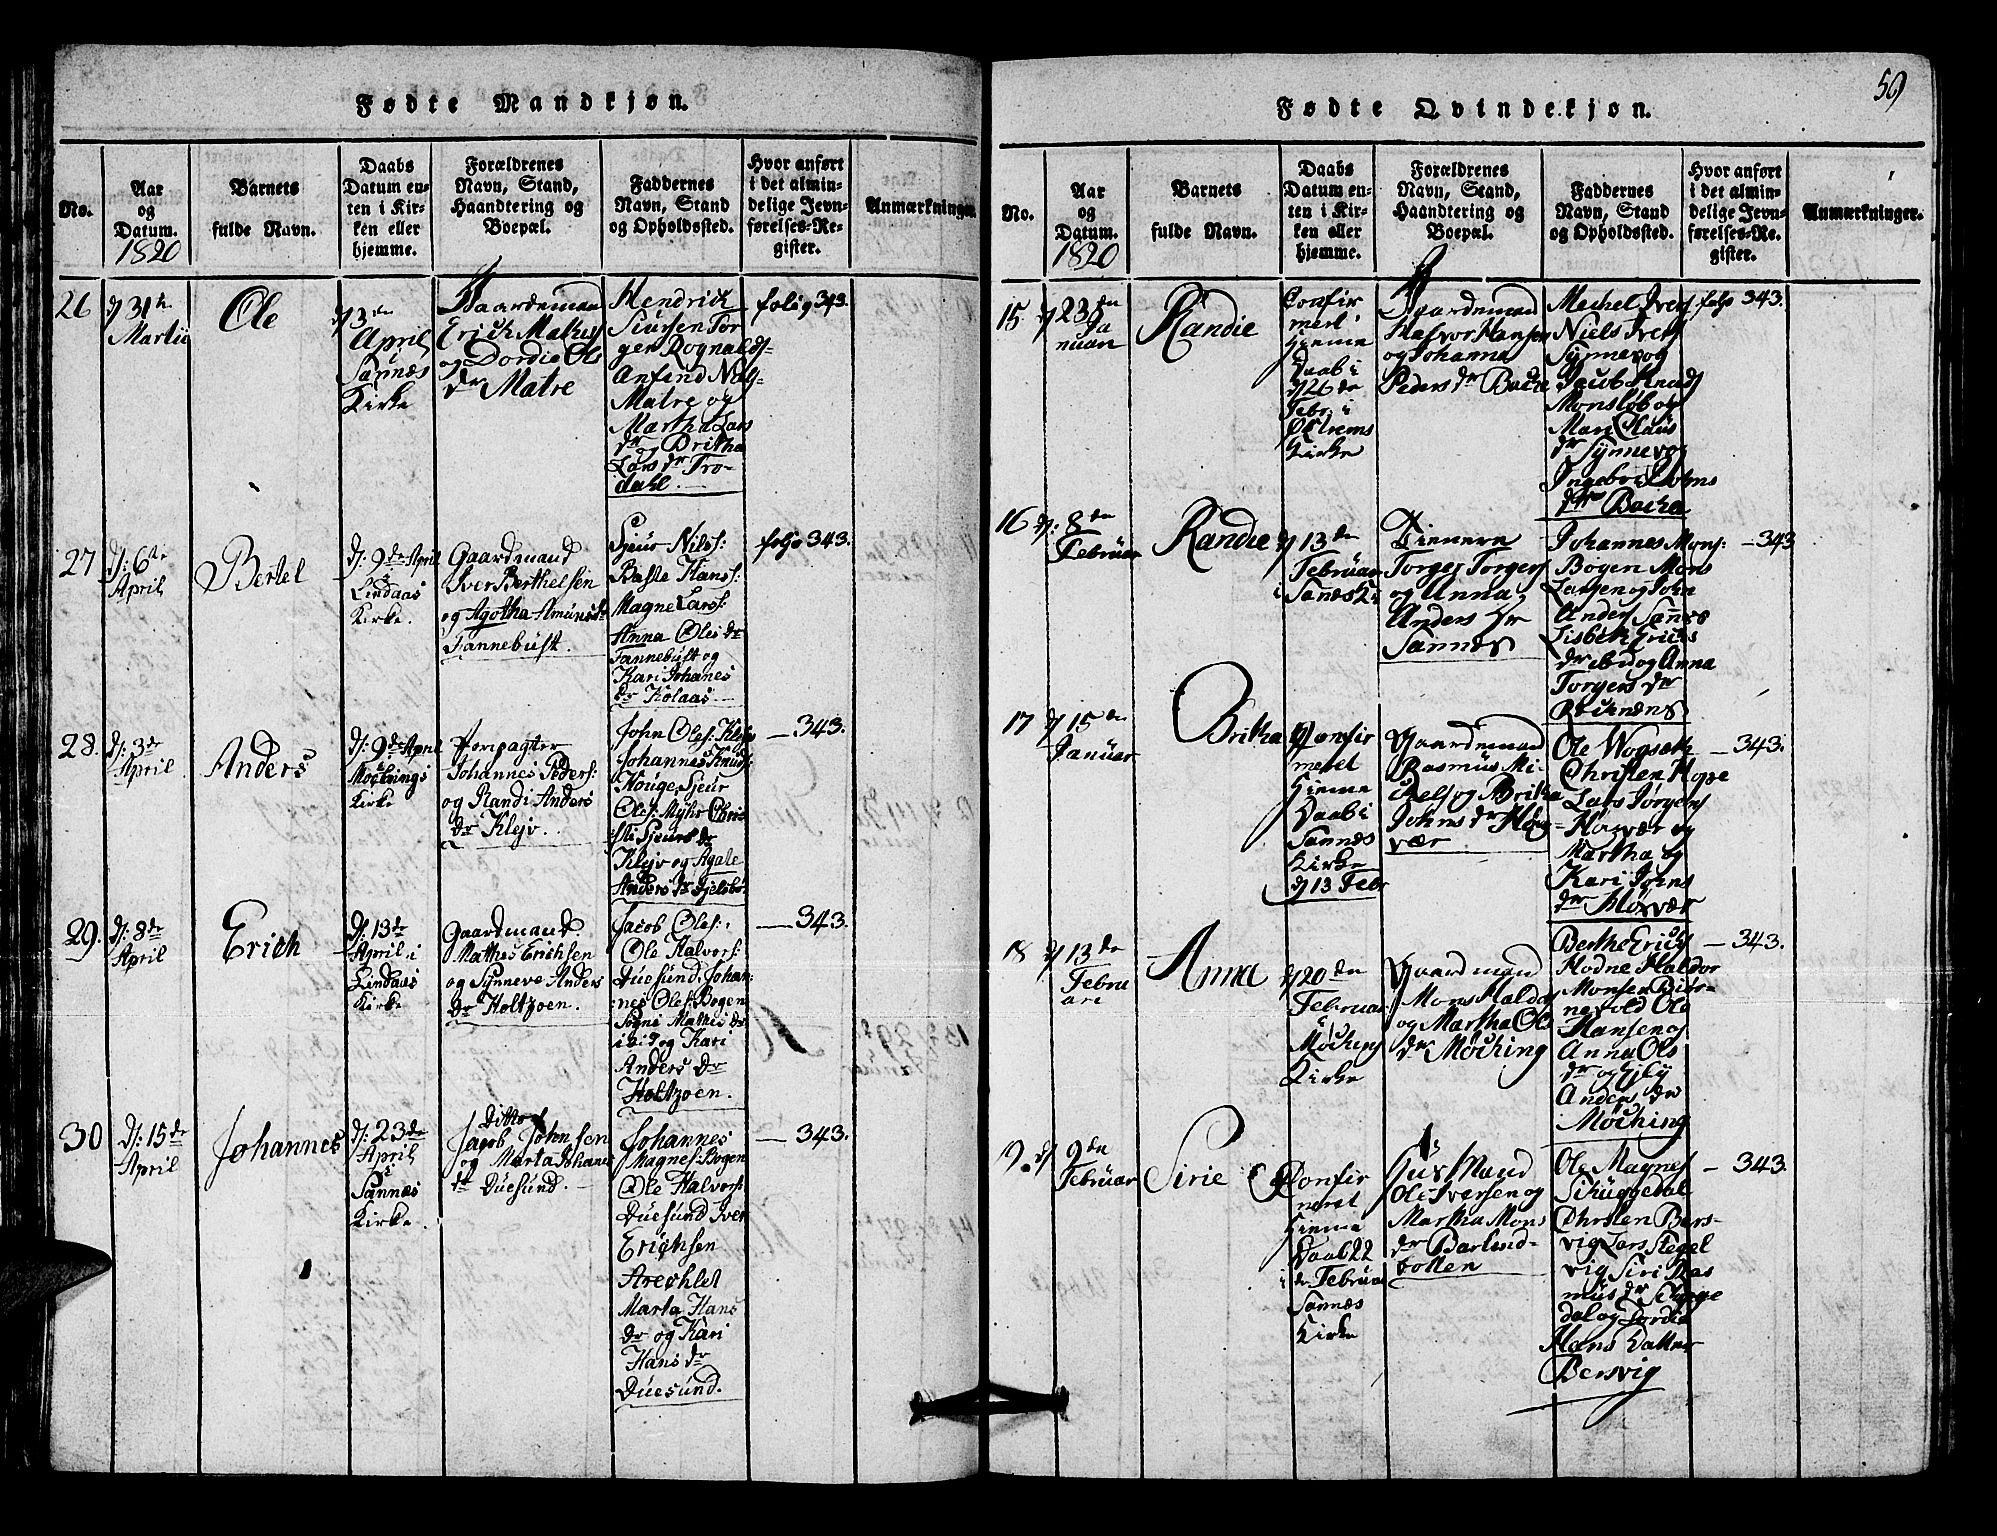 Fødte Mandkjøn.
No.
Aar
og
Datum.
1820
Barnets
fulde Navn.
Daabs
Datum en-
ten i Kir-
ken eller
hjemme.
Forældrenes
Navn, Stand,
Haandtering og
Boepæl.
Faddernes
Navn, Stand
og Opholdssted.
Hvor anført
i det almin-
delige Jevn-
førelses-Re-
gister.
Anmærkninger.
26
31
Martii
Ole
3 den
April
Sannæs
Kirke
Gaardemand
Erick
og Dordie Ols
dr Matre
Hendrick
Siursen Tor
ger Rognalds
Anfind
Matre og
Martha Lars
dr og Britha
Lars dr Tro-
dahl.
folio 343.
27
d: 6te
April
Bertel
d: 9de April
i
Lindaas
Kirke.
Gaardmand
Iver Berthelsen
og Agotha Amunds dr
Fannebust.
Sjeur Nilss:
Baste Hanss:
Magne Larss:
Anna Oles dr
Fannebust og
Kari Johanes
dr Kolaas
folio 343.
28.
d: 3de
April
Anders
d: 9de April
i
Kirke
Forpagter
Johannes Peders:
og Randi Anders
dr Klejv.
John Oles: Klejv
Johannes Knuds:
Kouge, Sjeur
Oles: Myhr Chris
:sti Sjeurs dr
Klejv og Agate
Anders dr
— 343.
29.
d: 8de
April
Erich
d: 13de
April i
Lindaas
Kirke
Gaardmand
Mathes Erichsen
og Synneve Anders
dr Holtzoen.
Jacob Oles:
Ole Halvors:
Duesund, Johan:
:nes Oles: Bogen
Sogni Mathis dr
og Kari
Anders dr
Holtzoen.
— 343.
30
d: 15de
April
Johannes
d: 23de
April
i
Sannæs
Kirke.
Ditto
Jacob Johnsen
og Marta Johanes
dr Duesund.
Johannes
Magnes: Bogen
Ole Halvors:
Duesund Iver
Erichsen
Marta Hans
dr og Kari
Hans dr
Duesund.
— 343.
59
Fødte Qvindekjøn.
No.
Aar
og
Datum.
1820
Barnets
fulde Navn.
Daabs
Datum en-
ten i Kir-
ken eller
hjemme.
Forældrenes
Navn, Stand,
Haandtering og
Boepæl.
Faddernes
Navn, Stand
og Opholdssted.
Hvor anført
i det almin-
delige Jevn-
førelses-Re-
gister.
Anmærkninger.
15
23 de
Ja
nuari
Randie
Confir
mert
Hiemme
Daab i
d 26 de
Febr. i
Kirke
Gaardemand
Halvor Hansen
og Johanna
Peders dr Backe
Mechel Ivers
Niels Ivers
Synnevog
Jacob Knuds
Monsløb og
Mari Claus
dr Synnevog
dr Backe
folio 343.
16
d: 8 de
Februar
Randie
d 13 de
Februar
i Sanæs Ki
Tienere
Torger Torgers
og Anna
Anders
Sannæs
Johannes Mons:
Bogen Mons
Larsen og John
Anders Sannæs
Lisbeth Erics
dr ibid og Anna
Torgers dr
— 343
17
d 15 de
Januar
Britha
Confir
meret
Hiemme
Daab i
Sannæs
Kirke
d 13 Febr
Gaardemand
Rasmus Mi
kels og Britha
Johns dr Høy-
vær
Ole Wogseth
Christen Hope
Lars Jørgens
Martha og
Kari Johns
dr
— 343.
18
d 13 de
Febru
ari
Anna
d 20 de
Februar
i
Møching
Kirke
Gaardmand
Mons Haldor
og Martha Ols
dr Møching
Berthe Erics
Hodne Haldor
Monsen
Ole
Hansen og
Anna Ols
dr og
Anders dr
Møching
— 343.
19.
d 9 de
Februar
Sirie
Confir
meret
Hiemme
Daab 22
de Februar
i
Sannæs
Kirke
Huusmand
Ole Iversen og
Martha Mons
dr Barlind-
botten
Ole Magnes
Skuggedal
Christen Bers-
vig Lars Stegel
vig Siri Ras
mus dr Skugge
dal og Dordie
Hans Datter
Bersvig
— 343.